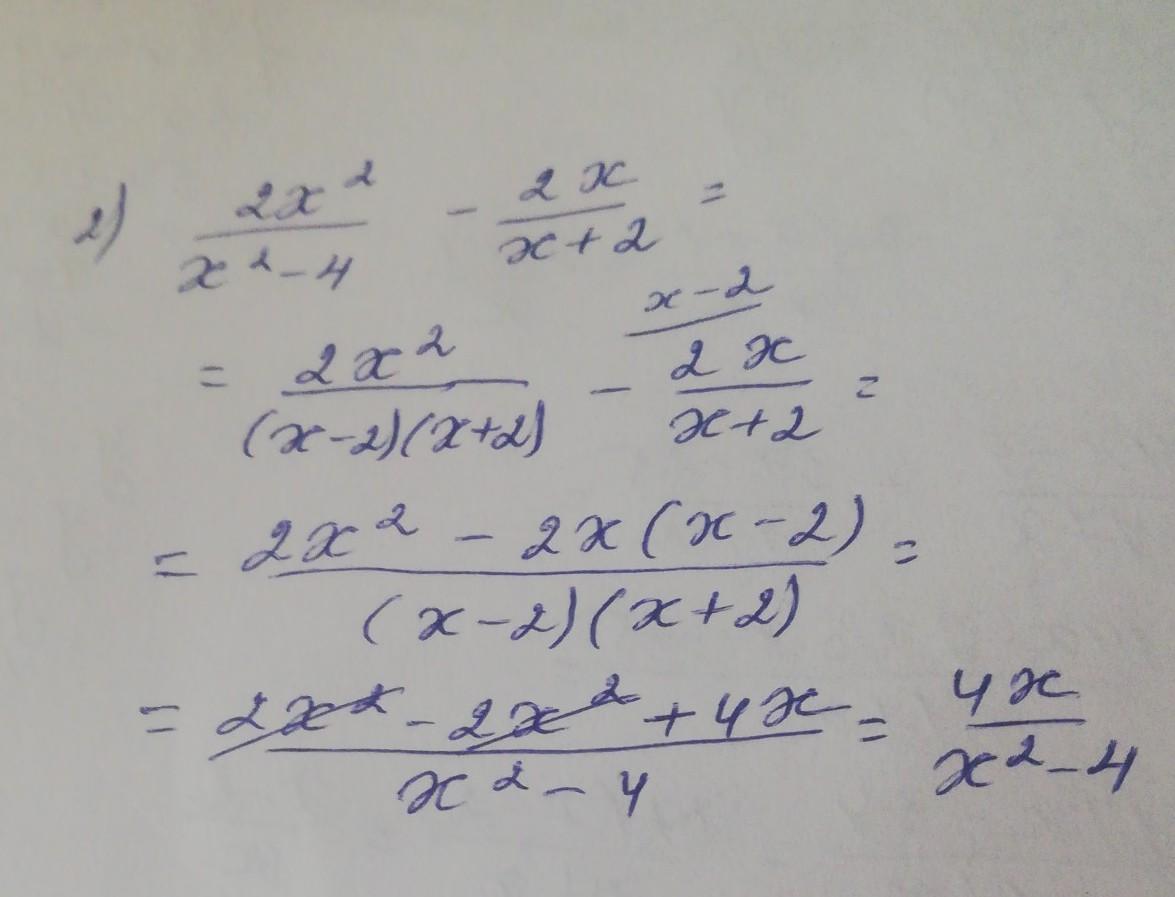 2) 2x²/(x²-4) - 2x/(x+2) =
x-2
= 2x²/((x-2)(x+2)) - 2x/(x+2) =
= (2x² - 2x(x-2))/((x-2)(x+2)) =
= (2x² - 2x² + 4x)/(x²-4) = 4x/(x²-4)